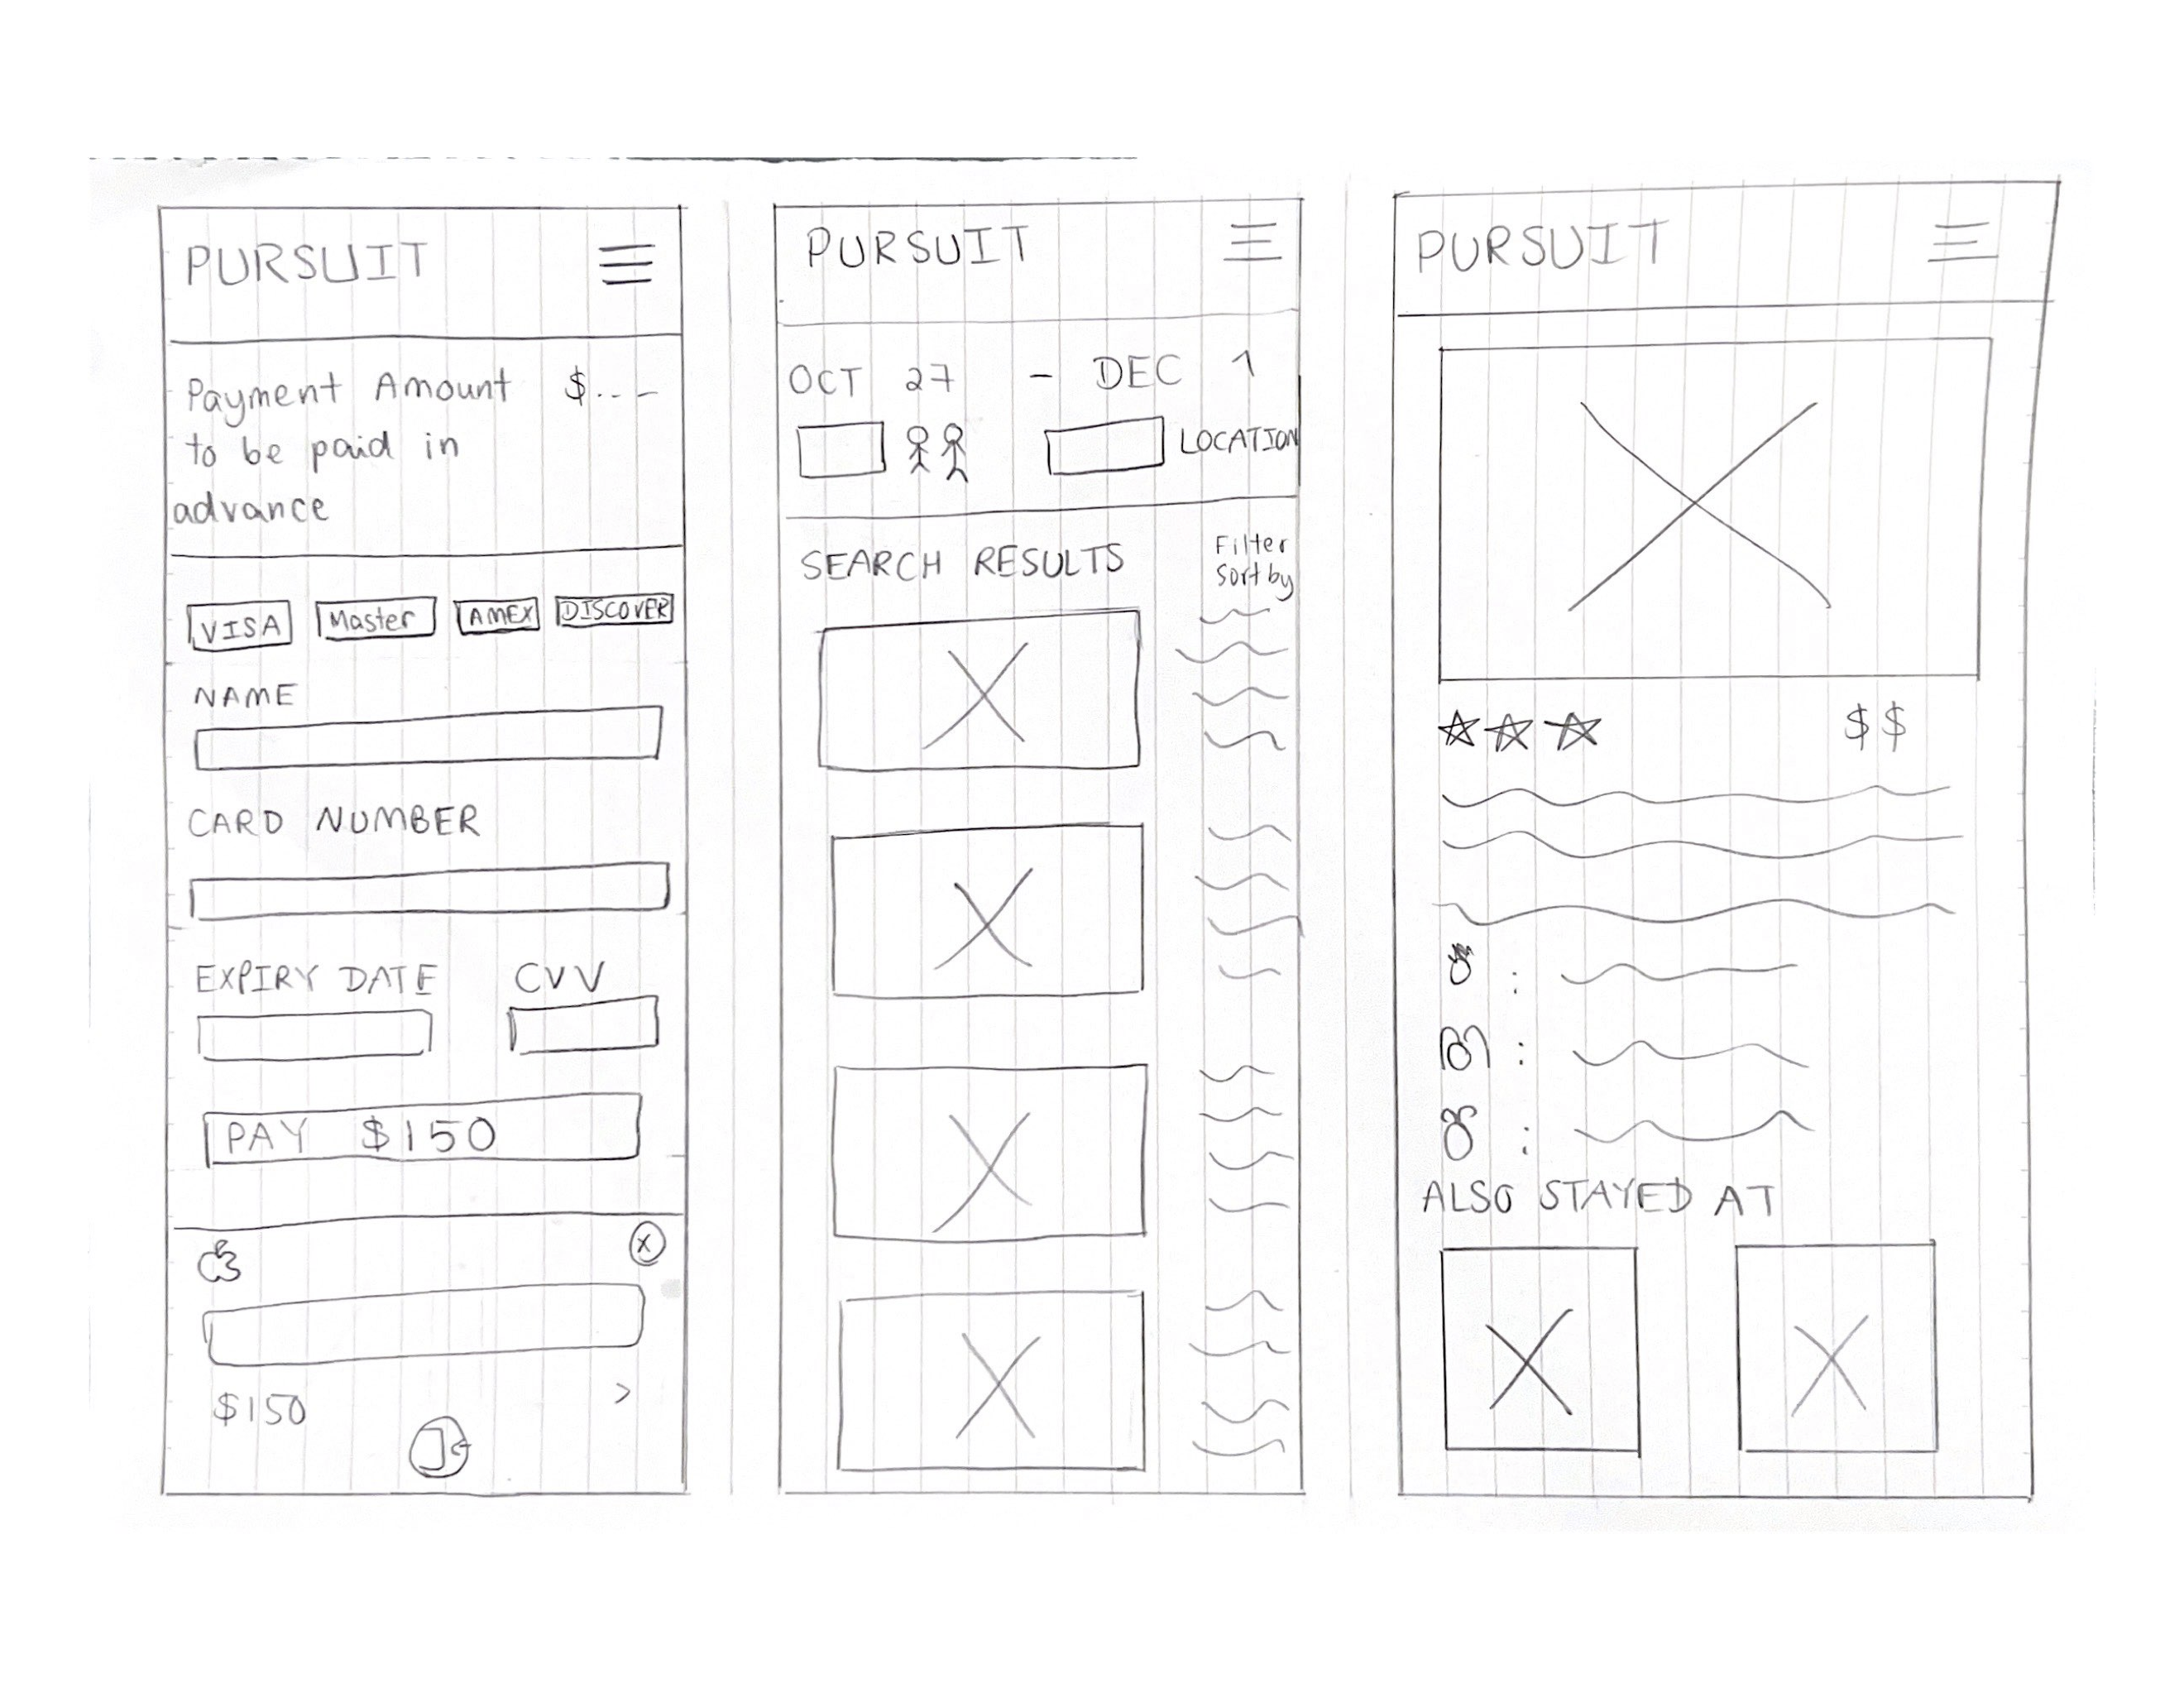 PURSUIT
Payment Amount $...
to be paid in
advance
VISA Master AMEX DISCOVER
NAME
CARD NUMBER
EXPIRY DATE CVV
PAY $150
$150 >
PURSUIT
OCT 27 - DEC 1
LOCATION
SEARCH RESULTS
Filter
Sort by
PURSUIT
$$
ALSO STAYED AT